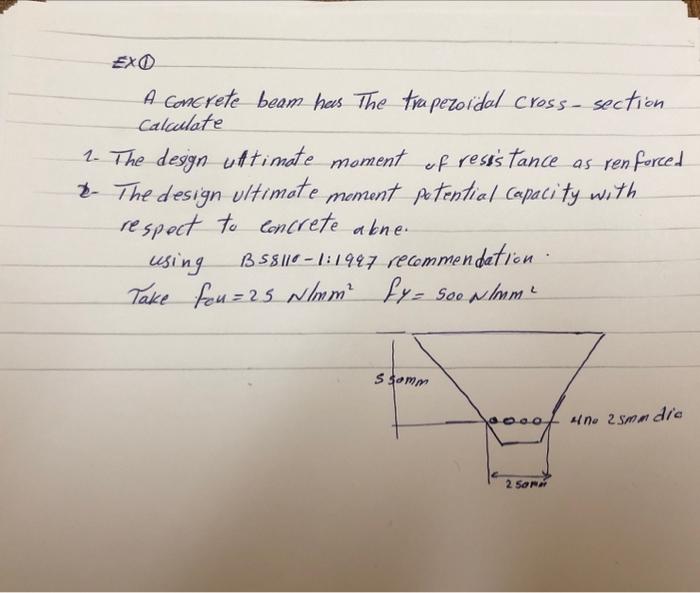 EX①
A concrete beam has The trapezoidal cross-section
Calculate
1- The design ultimate moment of resistance as renforced
2- The design ultimate moment potential capacity with
respect to concrete alone.
using BS8110-1:1997 recommendation.
Take fcu = 25 N/mm² fy = 500 N/mm²
550mm
4no 25mm dia
250mm